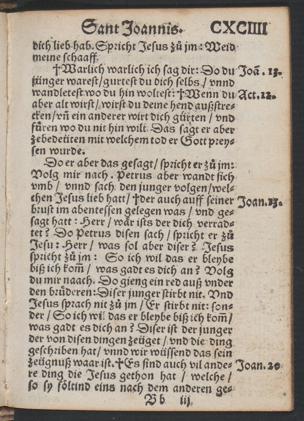 Sant Joannis. CXCIIII
dich lieb hab. Spricht Jesus zů jm: Weid
meine schaaff.
†Warlich warlich ich sag dir: Do du Joā. 13.
jünger warest/gurtest du dich selbs/vnnd
wandletest wo du hin woltest: †Wenn du Act. 12.
aber alt wirst/wirst du deine hend ausstre-
cken/vn̄ ein anderer wirt dich gürten/vnd
füren wo du nit hin wilt. Das sagt er aber
zebedeüten mit welchem tod er Gott prey-
sen wurde.
Do er aber das gesagt/spricht er zů jm:
Volg mir nach. Petrus aber wandt sich
vmb/vnnd sach den junger volgen/wel-
chen Jesus lieb hatt/†der auch auff seiner Joan. 13.
brust im abentessen gelegen was/vnd ge-
sagt hatt: Herr/wär ists der dich verradtet?
Do Petrus disen sach/spricht er zů
Jesu: Herr/was sol aber diser? Jesus
spricht zů jm: So ich wil das er bleybe
biß ich kom̄/was gadt es dich an? Volg
du mir naach. Do gieng ein red auß vnder
den brüderen: Diser junger stirbt nit. Vnd
Jesus sprach nit zů jm/Er stirbt nit: son-
der/So ich wil das er bleybe biß ich kom̄/
was gadt es dich an? Diser ist der junger
der von disen dingen zeüget/vnd die ding
geschriben hat/vnnd wir wüssend das sein
zeügnuß waar ist. †Es sind auch vil ande- Joan. 20
re ding die Jesus gethon hat/welche/
so sy söltind eins nach dem anderen ge-
Bb iij